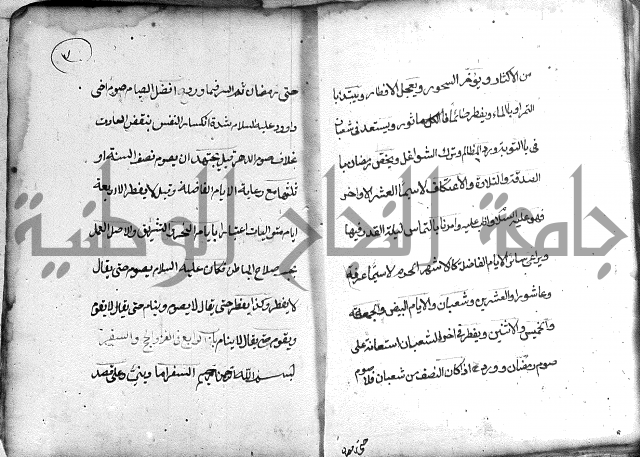 من الاكثار ويؤخر السحور ويعجل الافطار ويبتدئ با
لتمر او بالماء ويفطر صائما فالكل مأثور ويستعد في شعبان
بالتوبة ورد المظالم وترك الشواغل ويخص رمضان با
الصدقة والتلاوة والاعتكاف لاسيما العشر الاواخر
فهو عليه السلام وامرنا بالتماس ليلة القدر فيها
ويراعي سائر الايام الفاضلة كالاشهر الحرم لاسيما عرفة
وعاشورا والعشرين وشعبان والايام البيض والجمعة
والخميس والاثنين ويفطر في اخر الشعبان استعانة على
صوم رمضان وورد اذا كان النصف من شعبان فلا صوم
حتى رمضان
٧
حتى رمضان افضل الصيام صوم اخي
داود عليه السلام بشدة انكسار النفس بنقض العادت
بخلاف صوم الدهر قيل يجتهد ان يصوم نصف السنة او
ثلثها مع رعاية الايام الفاضلة وقيل لا يفطر الاربعة
ايام متواليات اعتبارا بايام النحر والتشريق والاصل العمل
بحسب صلاح الباطن فكان عليه السلام يصوم حتى يقال
لا يفطر وكذا يفطر حتى يقال لا يصوم وينام حتى يقال لا يقوم
ويقوم حتى يقال لا ينام الباب الرابع في والسفر
بسم الله الرحمن الرحيم السفر
جامعة النجاح الوطنية